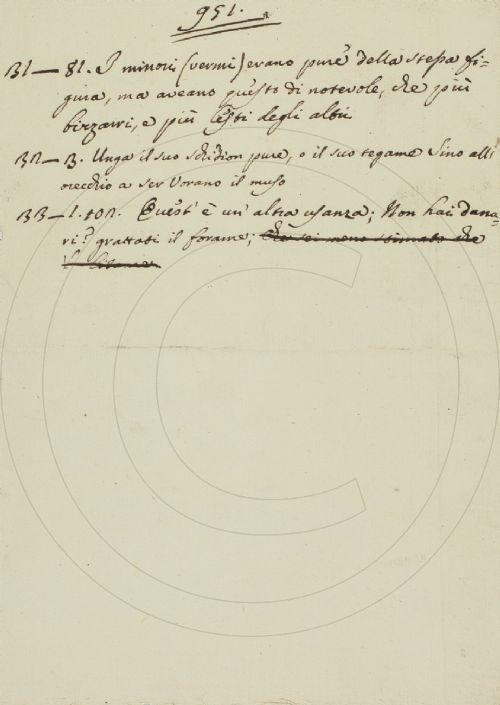 951.
31 — 81. I minori (vermi) erano pure della stessa fi-
gura, ma aveano questo di notevole, che più
bizzarri, e più lesti degli altri
32 — 3. Unga il suo schidion pure, o il suo tegame Sino all'
orecchio a ser Vorano il muso
33 — 1. 102. Quest' è un' altra usanza; Non hai dana-
ri? grattati il forame; che sei meno stimato che